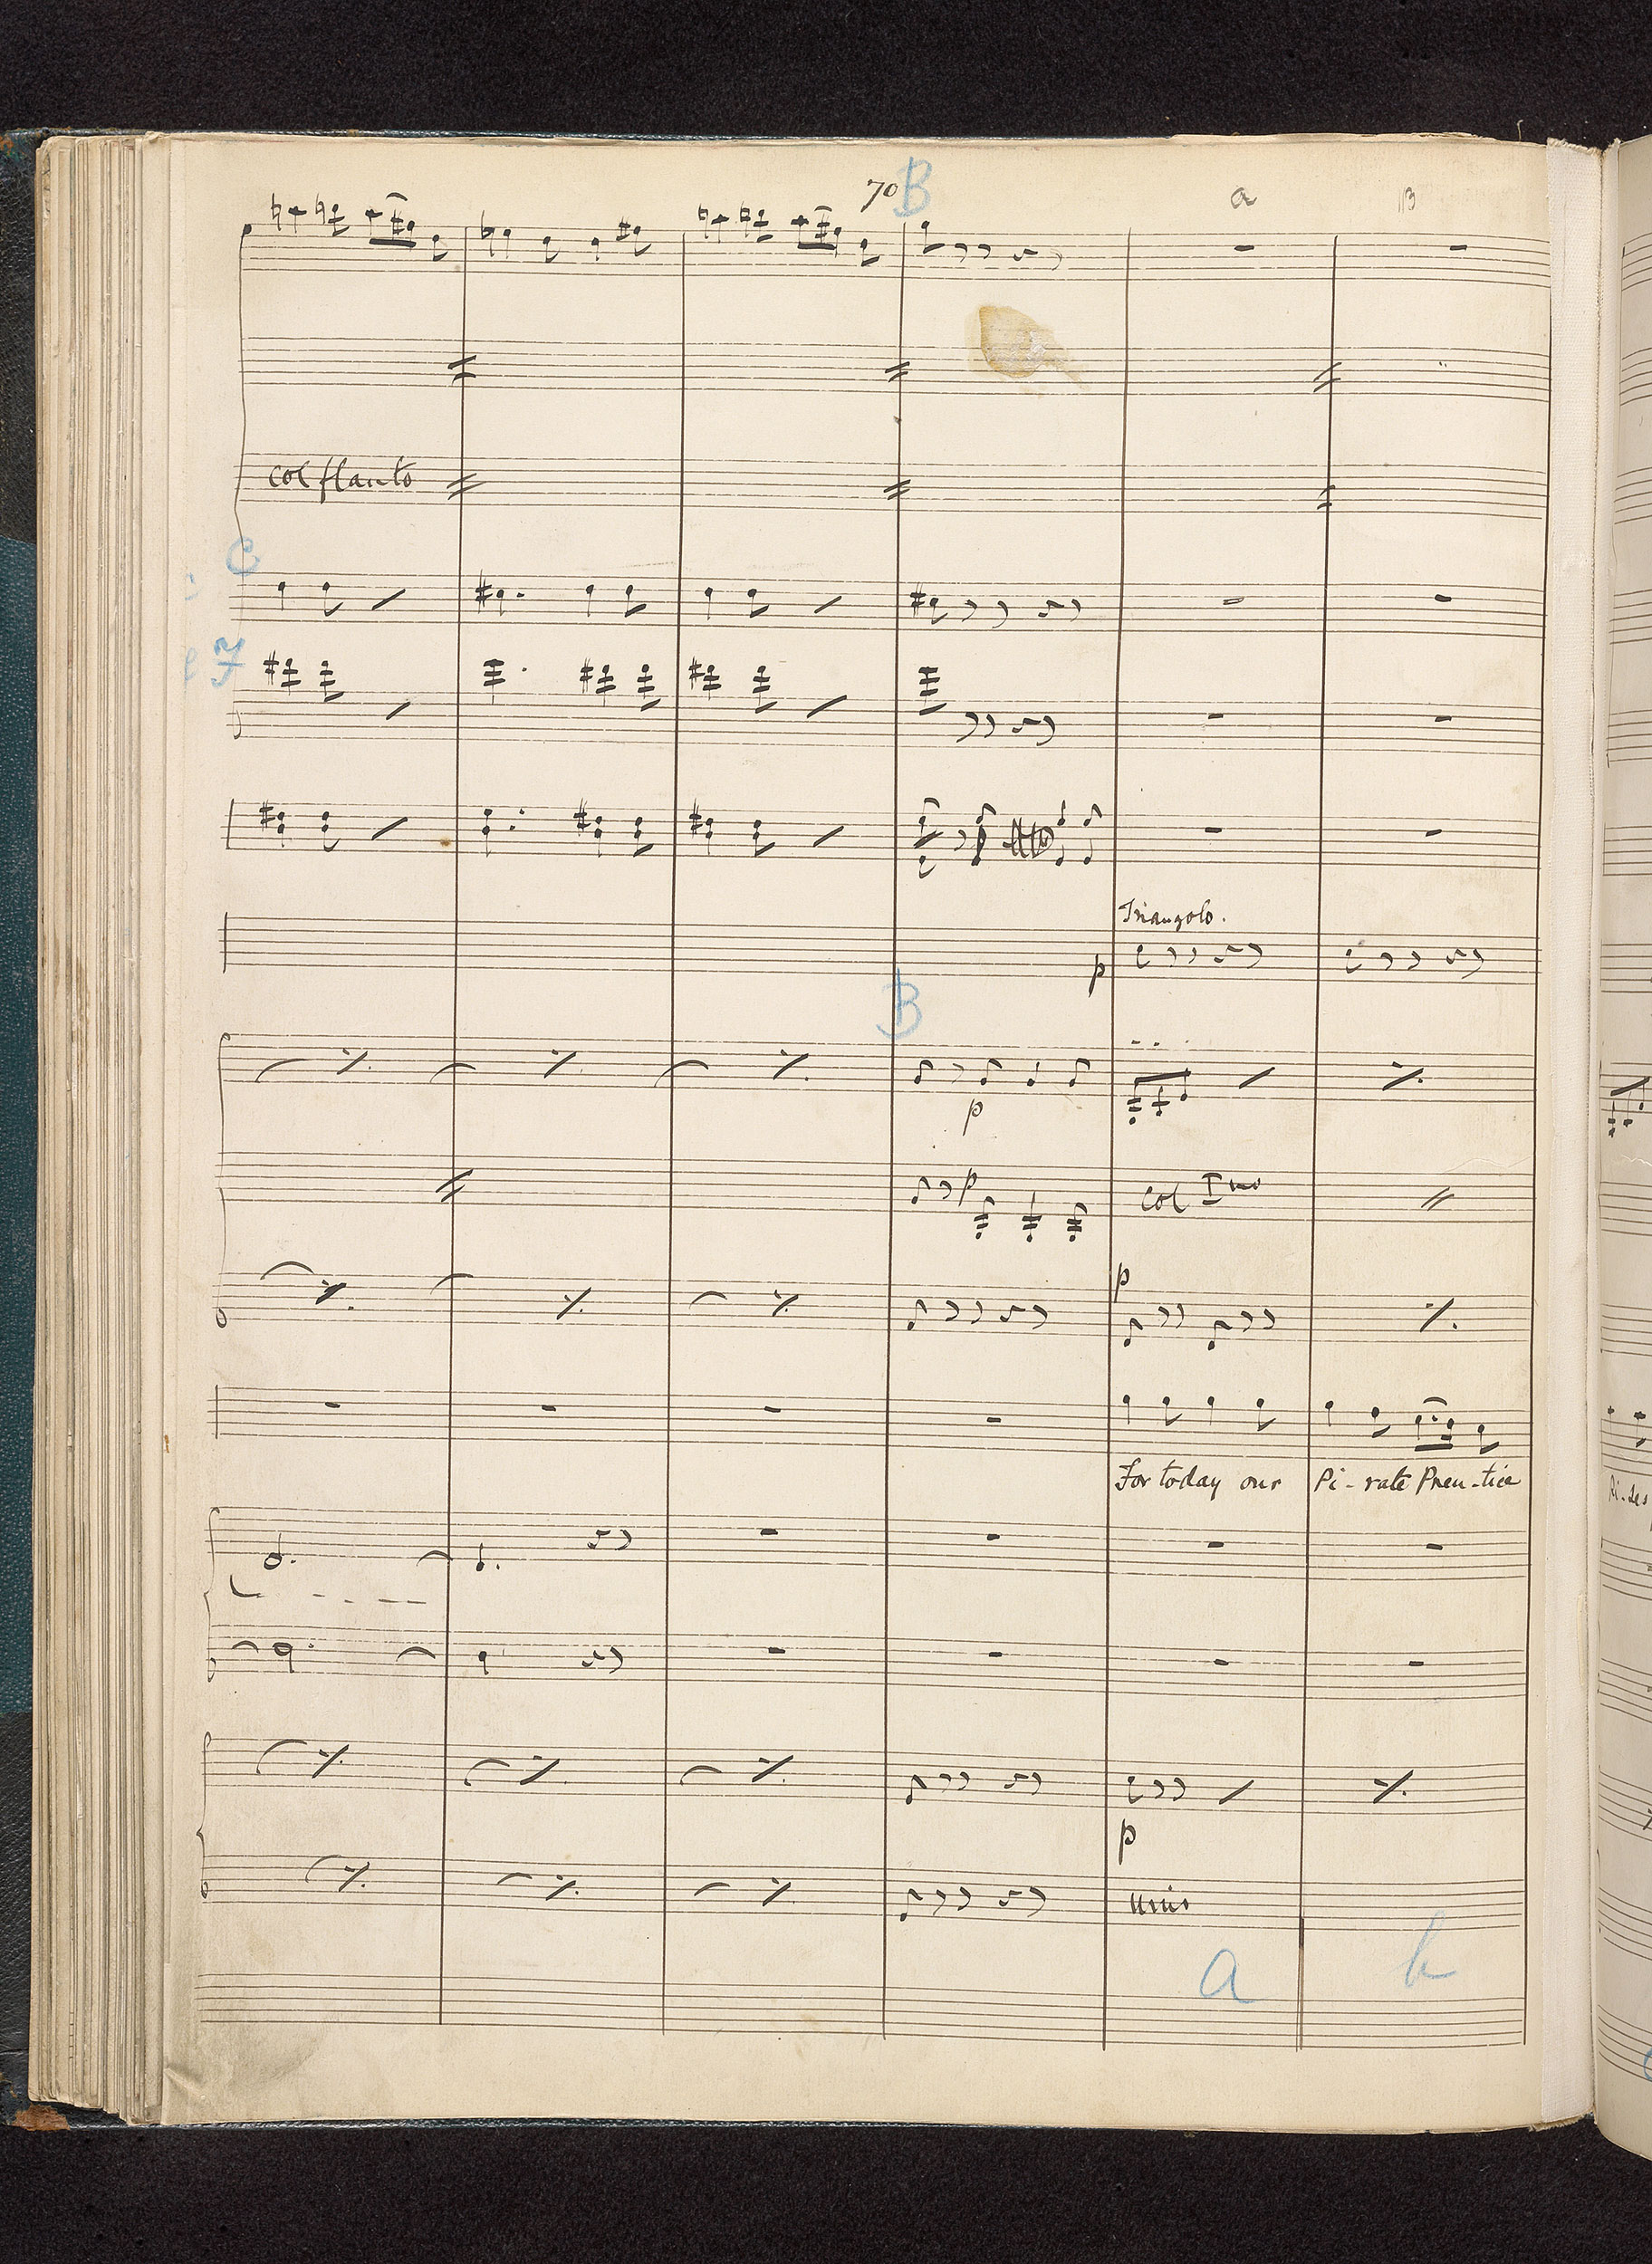 70 B
a B
col flauto
C
F
Triangolo.
p
B
p
p
col Imo
p
For today our Pi-rate Pren-tice
p
unis
a b